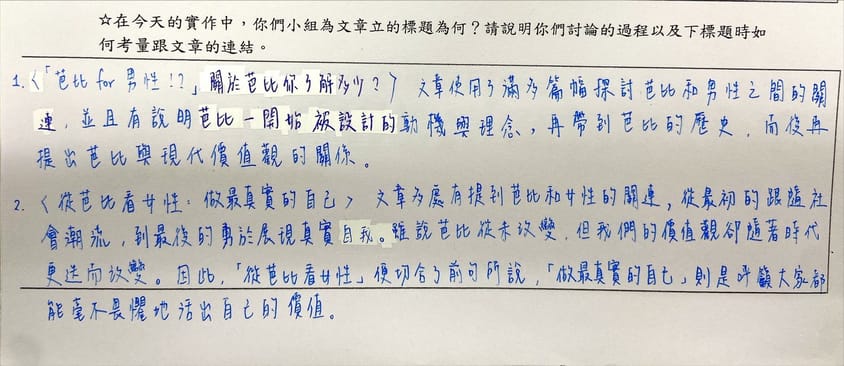 ☆在今天的實作中，你們小組為文章立的標題為何？請說明你們討論的過程以及下標題時如
何考量跟文章的連結。
1.〈「芭比for男性!？」關於芭比你了解多少？〉 文章使用了滿多篇幅探討芭比和男性之間的關
連，並且有說明芭比一開始被設計的動機與理念，再帶到芭比的歷史，而後再
提出芭比與現代價值觀的關係。
2.〈從芭比看女性：做最真實的自己〉 文章多處有提到芭比和女性的關連，從最初的跟隨社
會潮流，到最後的勇於展現真實自我。雖說芭比從未改變，但我們的價值觀卻隨著時代
更迭而改變。因此，「從芭比看女性」便切合了前句所說，「做最真實的自己」則是呼籲大家都
能毫不畏懼地活出自己的價值。